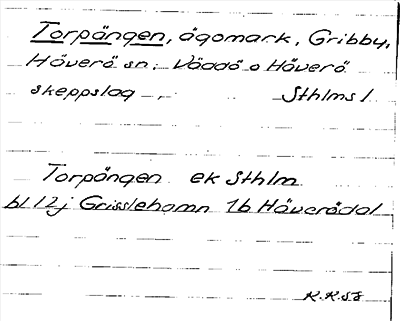 Torpängen, ägomark, Gribby,
Häverö sn; Väddö o Häverö
skeppslag - Sthlms l
Torpängen ek Sthlm
bl 12j Grisslehamn 1b Häverödal
K.K.58